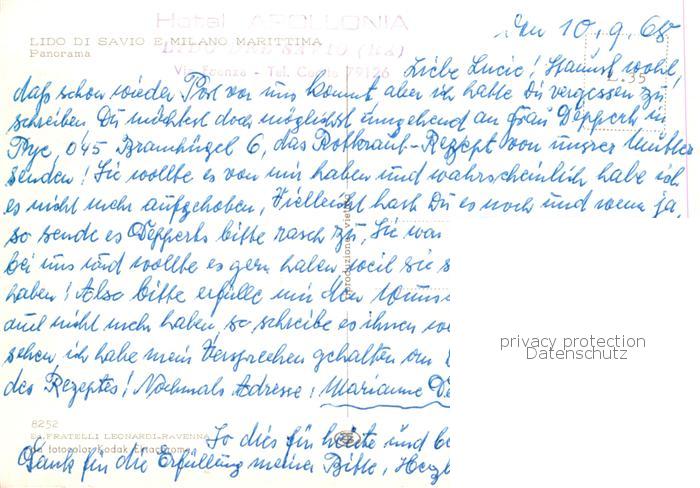 Hotel APOLLONIA
LIDO DI SAVIO (RA)
Via Firenze - Tel. Cervia 79126
LIDO DI SAVIO E MILANO MARITTIMA
Panorama
L. 35
Den 10. 9. 68
Liebe Lucie! Staunst wohl,
daß schon wieder Post von uns kommt aber ich hatte Dir vergessen zu
schreiben Du möchtest doch möglichst umgehend an Frau Depperts in
045 Bramhügel 6, das Rotkraut-Rezept von unsrer Mutter
senden! Sie wollte es von mir haben und wahrscheinlich habe ich
es nicht mehr aufgehoben, Vielleicht hast Du es noch und wenn ja,
so sende es Depperts bitte rasch zu, Sie war
bei uns und wollte es gern haben, weil sie s
haben! Also bitte erfülle mir den Wuns
und nicht mehr haben, so schreibe es ihnen
sehen ich habe mein Versprechen gehalten
des Rezeptes! Nochmals Adresse: Marianne De
riproduzione vietata
privacy protection
Datenschutz
8252
Ed. FRATELLI LEONARDI-RAVENNA
da fotocolor Kodak Ektachrome
So dies für heute und
Dank für die Erfüllung meiner Bitte, Herzl